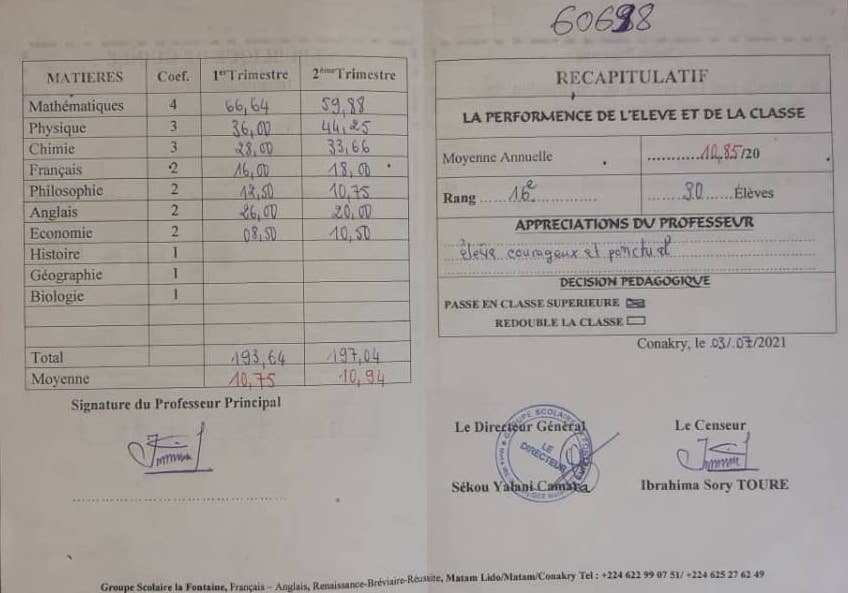 60698
MATIERES Coef. 1er Trimestre 2ème Trimestre
Mathématiques 4 66,64 59,88
Physique 3 36,00 44,25
Chimie 3 28,00 33,66
Français 2 16,00 18,00
Philosophie 2 12,50 10,75
Anglais 2 26,00 20,00
Economie 2 08,50 10,50
Histoire 1
Géographie 1
Biologie 1
Total 193,64 197,04
Moyenne 10,75 10,94
Signature du Professeur Principal
RECAPITULATIF
LA PERFORMENCE DE L'ELEVE ET DE LA CLASSE
Moyenne Annuelle ...........10,85/20
Rang ......16e............... .......30......Élèves
APPRECIATIONS DU PROFESSEUR
élève courageux et ponctuel
DECISION PEDAGOGIQUE
PASSE EN CLASSE SUPERIEURE
REDOUBLE LA CLASSE
Conakry, le 03/.07/2021
Le Directeur Général Le Censeur
LE
DIRECTEUR
Sékou Yalani Camara Ibrahima Sory TOURE
Groupe Scolaire la Fontaine, Français – Anglais, Renaissance-Bréviaire-Réussite, Matam Lido/Matam/Conakry Tel : +224 622 99 07 51/ +224 625 27 62 49